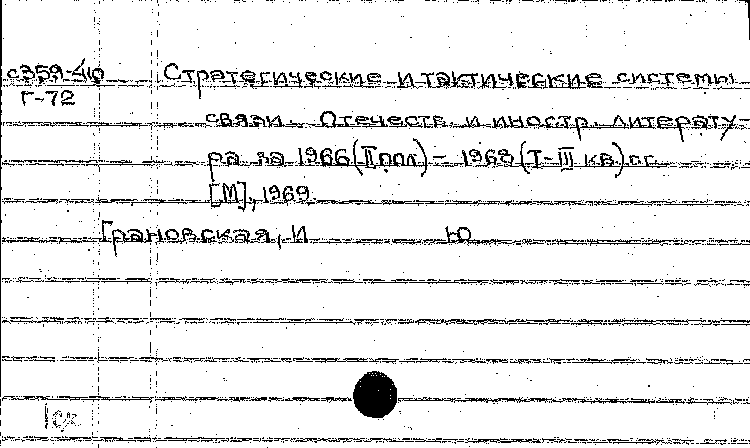 с359-410 Стратегические и тактические системы
Г-72
связи. Отечеств. и иностр. литерату-
ра за 1966 (II пол.) – 1968 (I-III кв.) г.г.
[М], 1969.
Грановская, И Ю
1 ск